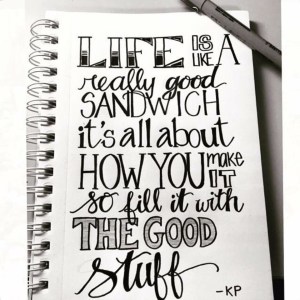 LIFE IS LIKE A
really good
SANDWICH
it's all about
HOW YOU make IT
so fill it with
THE GOOD
stuff
-KP